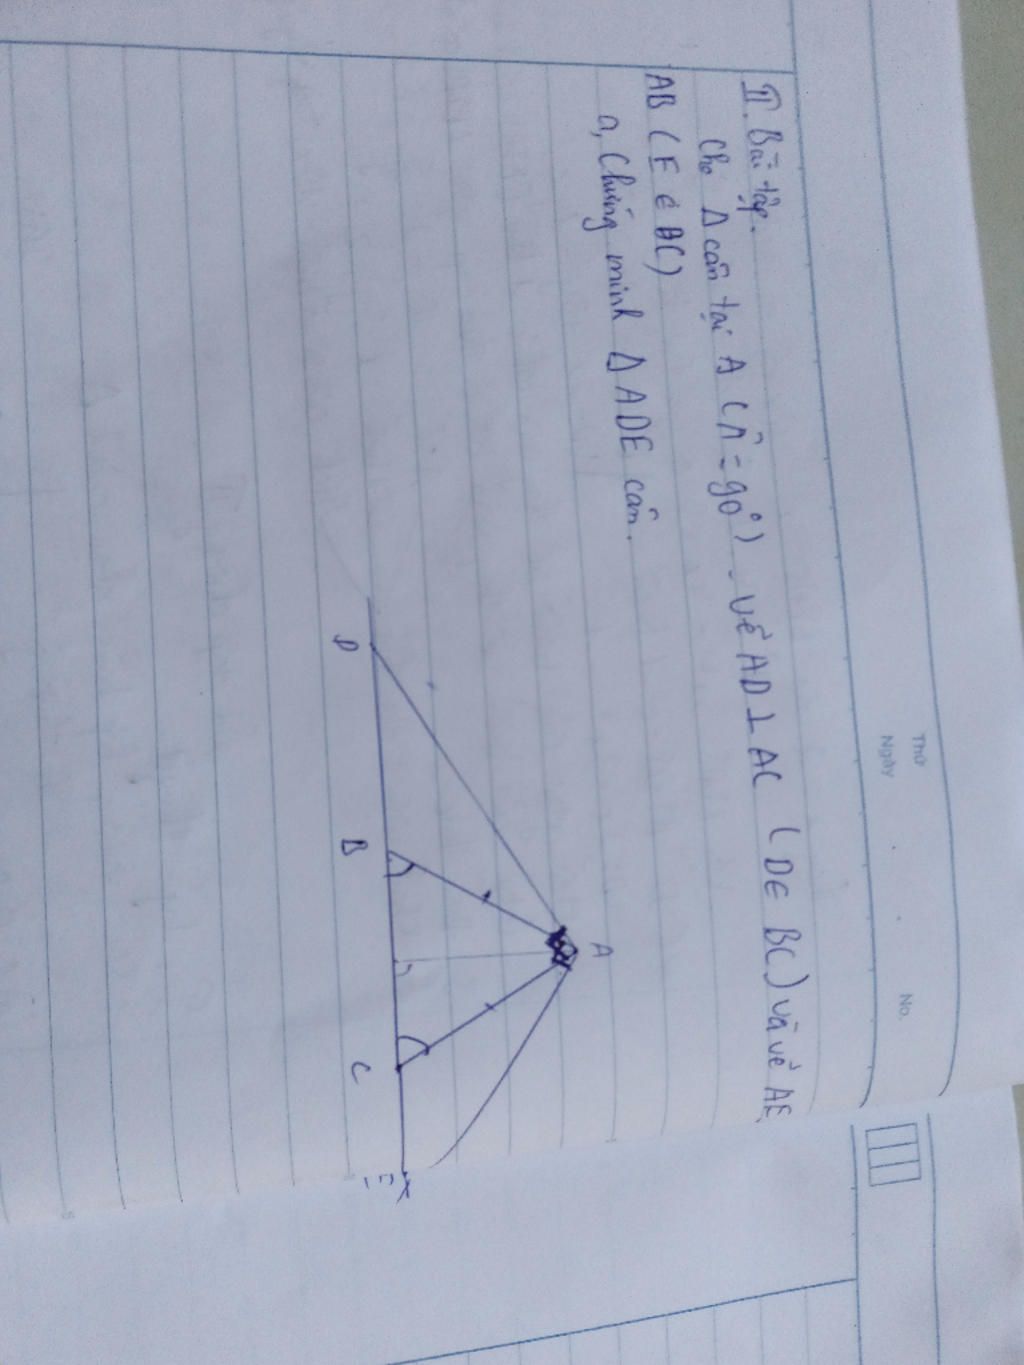 Thứ
Ngày
No.
II. Bài tập.
Cho Δ cân tại A (Â = 90°). Vẽ AD ⊥ AC (D ∈ BC) và vẽ AE
AB (E ∈ BC)
a, Chứng minh Δ ADE cân.
A
D
B
C
E